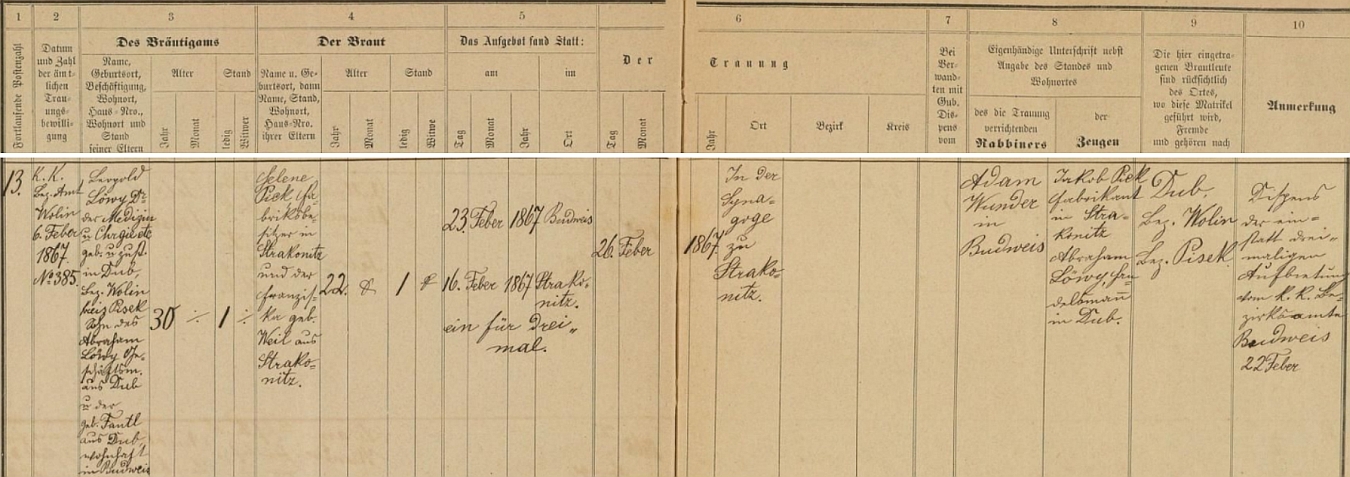 1
2
3
4
5
6
7
8
9
10
Fortlaufende Postenzahl
Datum
und Zahl
der ämt-
lichen
Trau-
ungs-
bewilli-
gung
Des Bräutigams
Name,
Geburtsort,
Beschäftigung,
Wohnort,
Haus-Nro.,
Wohnort und
Stand
seiner Eltern
Alter
Jahr
Monat
Stand
ledig
Witwer
Der Braut
Name u. Ge-
burtsort, dann
Name, Stand,
Wohnort,
Haus-Nro.
ihrer Eltern
Alter
Jahr
Monat
Stand
ledig
Witwe
Das Aufgebot fand Statt:
am
im
Tag
Monat
Jahr
Ort
Der Trauung
Tag
Monat
Jahr
Ort
Bezirk
Kreis
Bei
Ver-
wand-
ten mit
Gub.
Dis-
pens
vom
Eigenhändige Unterschrift nebst
Angabe des Standes und
Wohnortes
des die Trauung
verrichtenden
Rabbiners
der
Zeugen
Die hier eingetra-
genen Brautleute
sind rücksichtlich
des Ortes,
wo diese Matrikel
geführt wird,
Fremde
und gehören nach
Anmerkung
13.
K. K.
Bez. Amt
Wolin
6. Feber
1867.
No. 385.
Leopold
Löwy Dr
der Medizin
u Chrgie etc
geb. u zust.
in Dub,
Bez. Wolin
Kreis Pisek
Sohn des
Abraham
Löwy Ge-
schäftsm.
aus Dub
u der
geb. Fantl
aus Dub,
wohnhaft
in Budweis
30 ÷ 1 ÷
Selene
Pick Fa-
briksbe-
sitzer in
Strakonitz
und der
Franzis-
ka geb.
Weil aus
Strako-
nitz.
22 1
23. Feber 1867 Budweis
16. Feber 1867 Strako-
nitz.
ein für drei-
mal.
26. Feber
1867.
In der
Syna-
goge
zu
Strako-
nitz.
Adam
Wunder
in
Budweis
Jakob Pick
Fabrikant
in Stra-
konitz
Abraham
Löwy, Han-
delsmann
in Dub.
Dub
Bez. Wolin
Bez. Pisek.
Dispens
der ein-
statt drei-
maligen
Aufbietung
vom k. k. Be-
zirksamte
Budweis
22 Feber